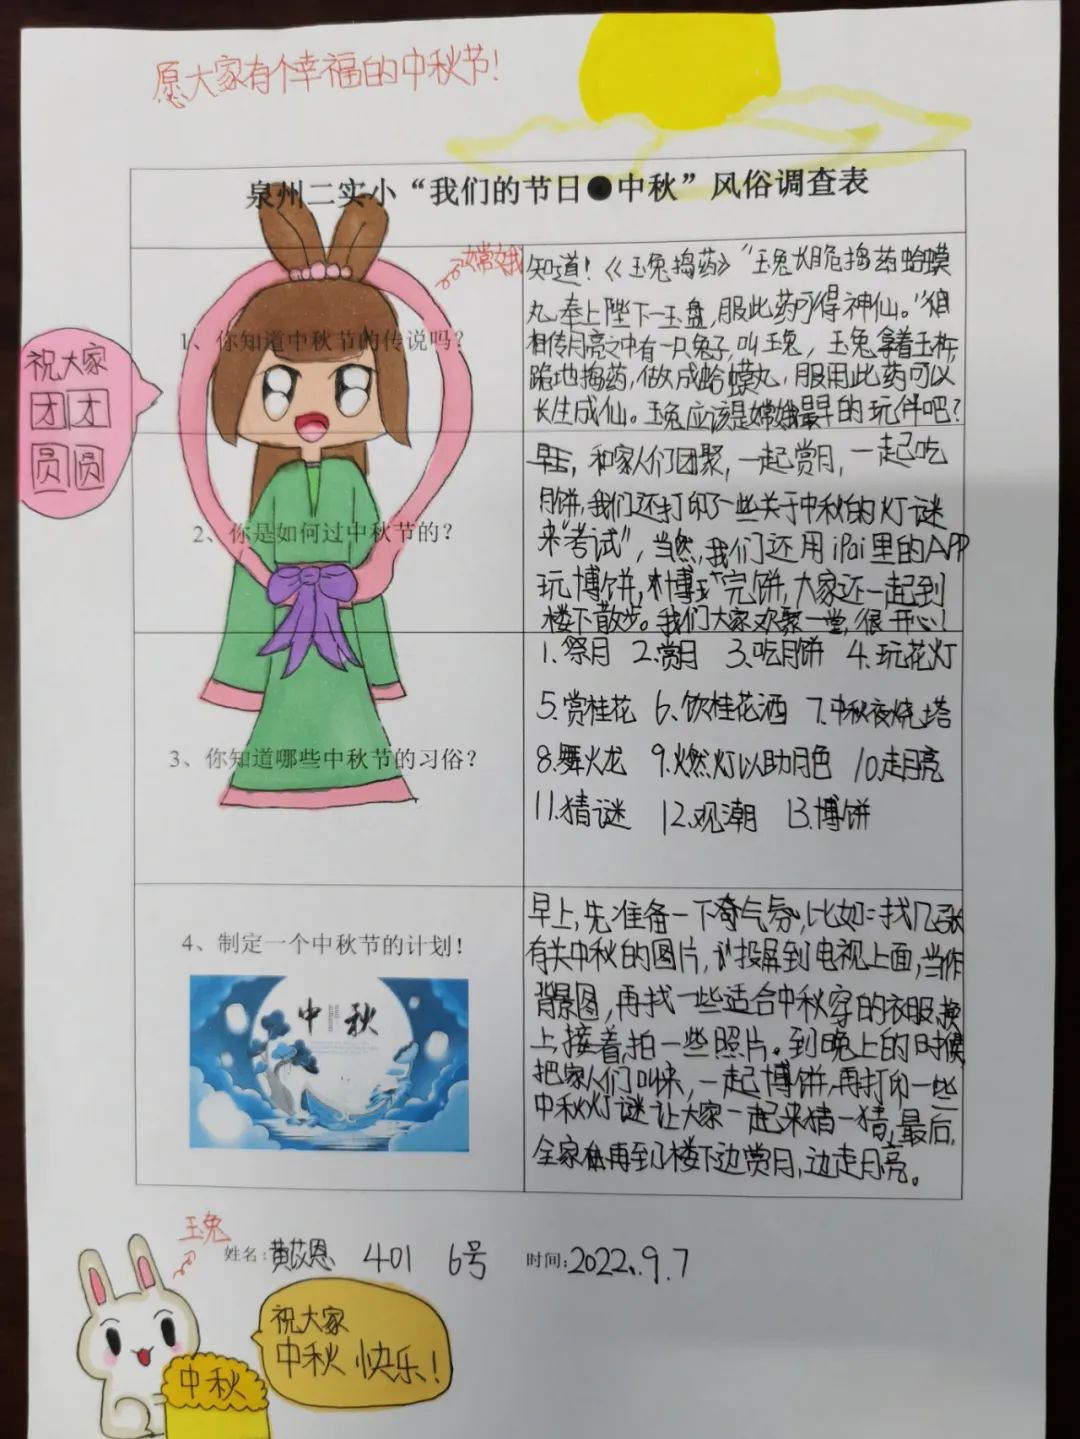 愿大家有个幸福的中秋节!
泉州二实小“我们的节日●中秋”风俗调查表
嫦娥
1、你知道中秋节的传说吗?
知道!《玉兔捣药》“玉兔长跪捣药蛤蟆
丸,奉上陛下一玉盘,服此药可得神仙。”
相传月亮之中有一只兔子,叫玉兔,玉兔拿着玉杵,
跪地捣药,做成蛤蟆丸,服用此药可以
长生成仙。玉兔应该是嫦娥最早的玩伴吧?
祝大家
团才
圆圆
2、你是如何过中秋节的?
和家人们团聚,一起赏月,一起吃
月饼,我们还打印了一些关于中秋的灯谜
来“考试”,当然,我们还用iPai里的APP
玩博饼,博完饼,大家还一起到
楼下散步。我们大家欢聚一堂,很开心!
3、你知道哪些中秋节的习俗?
1.祭月 2.赏月 3.吃月饼 4.玩花灯
5.赏桂花 6.饮桂花酒 7.中秋夜烧塔
8.舞火龙 9.燃灯以助月色 10.走月亮
11.猜谜 12.观潮 13.博饼
4、制定一个中秋节的计划!
中秋
早上,先准备一下气氛,比如:找几张
有关中秋的图片,投屏到电视上面,当作
背景图,再找一些适合中秋穿的衣服,换
上,接着,拍一些照片。到晚上的时候
把家人们叫来,一起博饼,再打印一些
中秋灯谜让大家一起来猜一猜,最后,
全家再到楼下边赏月,边走月亮。
玉兔
姓名:黄苡恩 401 6号 时间:2022.9.7
祝大家
中秋快乐!
中秋